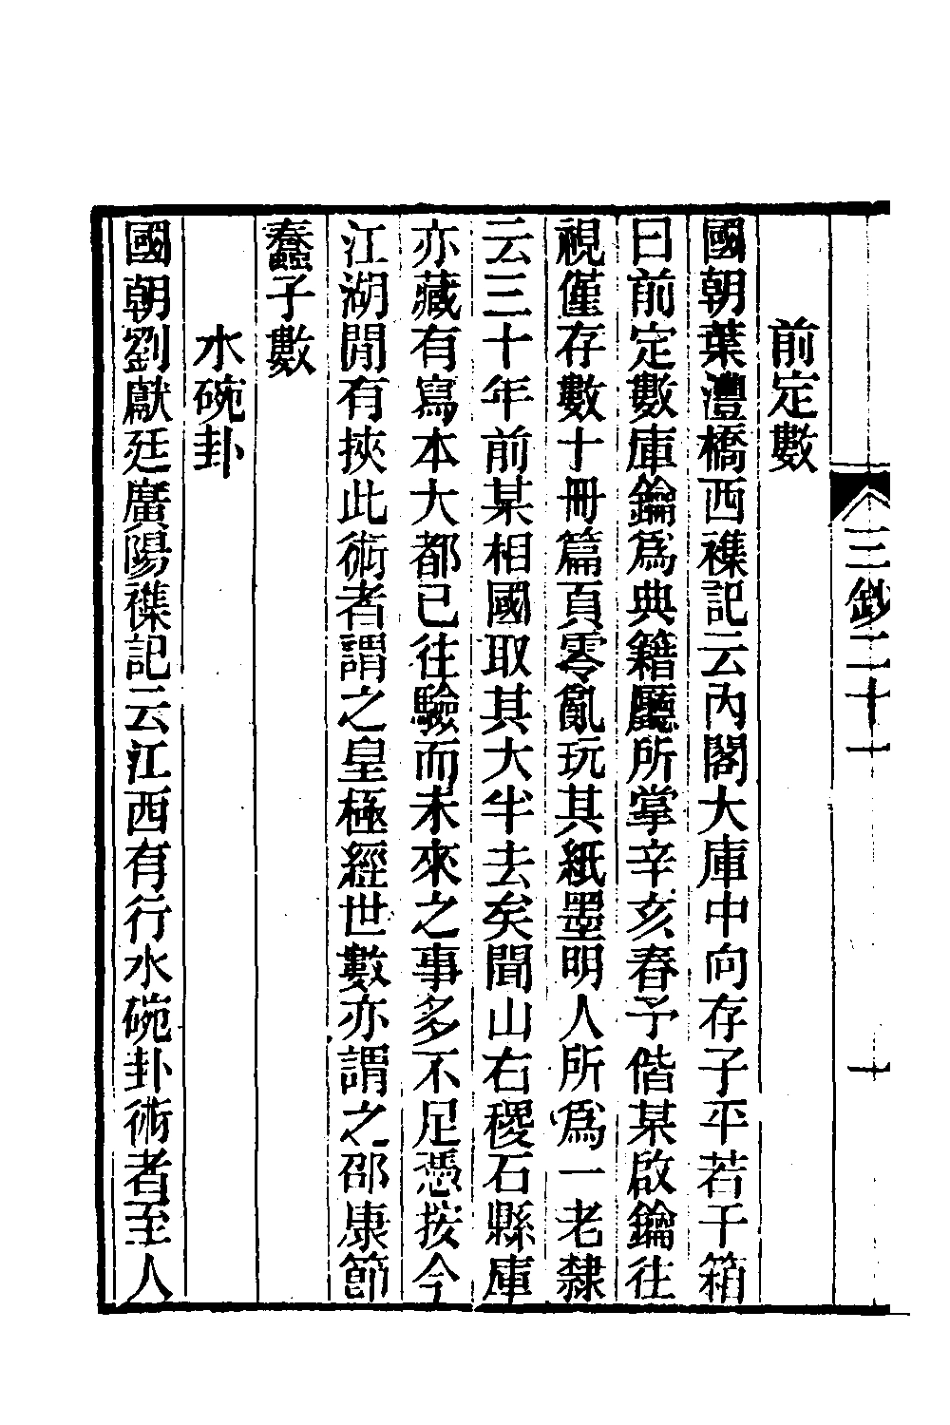 三鈔二十一
一
前定數
國朝葉灃橋西襍記云內閣大庫中向存子平若干箱
曰前定數庫鑰爲典籍廳所掌辛亥春予偕某啟鑰往
視僅存數十冊篇頁零亂玩其紙墨明人所爲一老隸
云三十年前某相國取其大半去矣聞山右稷石縣庫
亦藏有寫本大都已往驗而未來之事多不足憑按今
江湖閒有挾此術者謂之皇極經世數亦謂之邵康節
蠢子數
水碗卦
國朝劉獻廷廣陽襍記云江西有行水碗卦術者至人